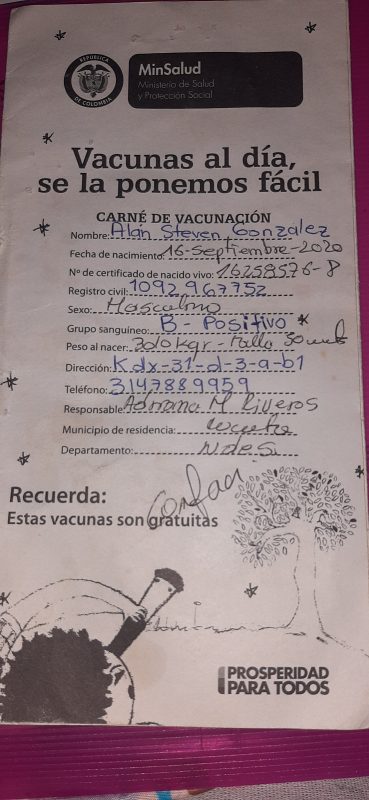 REPUBLICA
DE COLOMBIA
MinSalud
Ministerio de Salud
y Protección Social
Vacunas al día,
se la ponemos fácil
CARNÉ DE VACUNACIÓN
Nombre: Alan Steven Gonzalez
Fecha de nacimiento: 16-Septiembre-2020
N° de certificado de nacido vivo: 16259576-8
Registro civil: 1092967752
Sexo: Masculino
Grupo sanguíneo: B- Positivo
Peso al nacer: 3010kgr - Talla 50
Dirección: Kdx-31-d-3-a-b1
Teléfono: 3147889959
Responsable: Adriana M Riveros
Municipio de residencia: Cucuta
Departamento: N de S.
Recuerda:
Estas vacunas son gratuitas
PROSPERIDAD
PARA TODOS